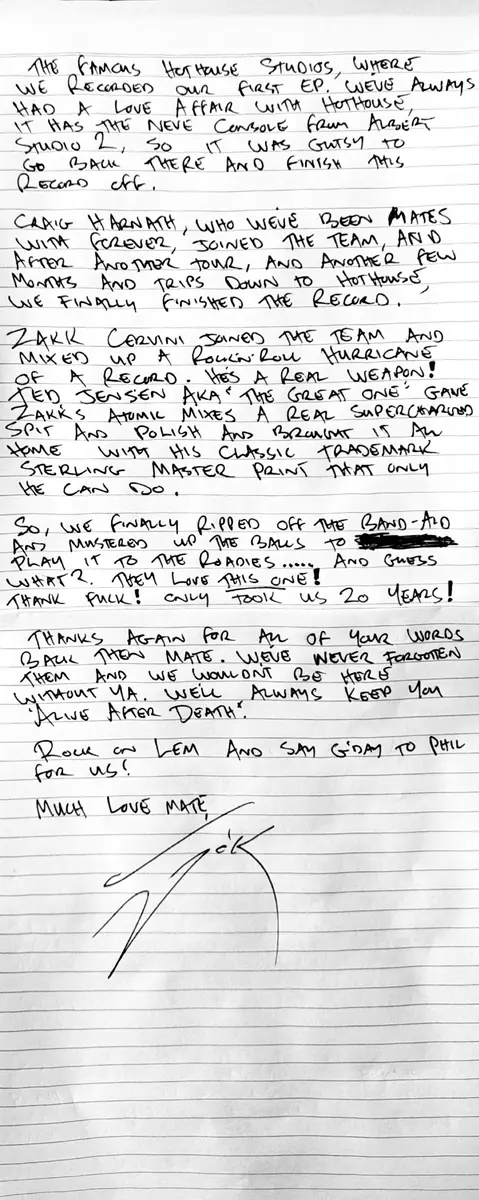 THE FAMOUS HOTHOUSE STUDIOS, WHERE
WE RECORDED OUR FIRST EP. WE'VE ALWAYS
HAD A LOVE AFFAIR WITH HOTHOUSE,
IT HAS THE NEVE CONSOLE FROM ALBERT
STUDIO 2, SO IT WAS GUTSY TO
GO BACK THERE AND FINISH THIS
RECORD OFF.
CRAIG HARNATH, WHO WE'VE BEEN MATES
WITH FOREVER, JOINED THE TEAM, AND
AFTER ANOTHER TOUR, AND ANOTHER FEW
MONTHS AND TRIPS DOWN TO HOTHOUSE,
WE FINALLY FINISHED THE RECORD.
ZAKK CERVINI JOINED THE TEAM AND
MIXED UP A ROCK'N'ROLL HURRICANE
OF A RECORD. HE'S A REAL WEAPON!
TED JENSEN AKA "THE GREAT ONE" GAVE
ZAKK'S ATOMIC MIXES A REAL SUPERCHARGED
SPIT AND POLISH AND BROUGHT IT ALL
HOME WITH HIS CLASSIC TRADEMARK
STERLING MASTER PRINT THAT ONLY
HE CAN DO.
SO, WE FINALLY RIPPED OFF THE BAND-AID
AND MUSTERED UP THE BALLS TO
PLAY IT TO THE ROADIES ..... AND GUESS
WHAT?. THEY LOVE THIS ONE!
THANK FUCK! ONLY TOOK US 20 YEARS!
THANKS AGAIN FOR ALL OF YOUR WORDS
BACK THEN MATE. WE'VE NEVER FORGOTEN
THEM AND WE WOULDN'T BE HERE
WITHOUT YA. WE'LL ALWAYS KEEP YOU
"ALIVE AFTER DEATH".
ROCK ON LEM AND SAY G'DAY TO PHIL
FOR US!
MUCH LOVE MATE,